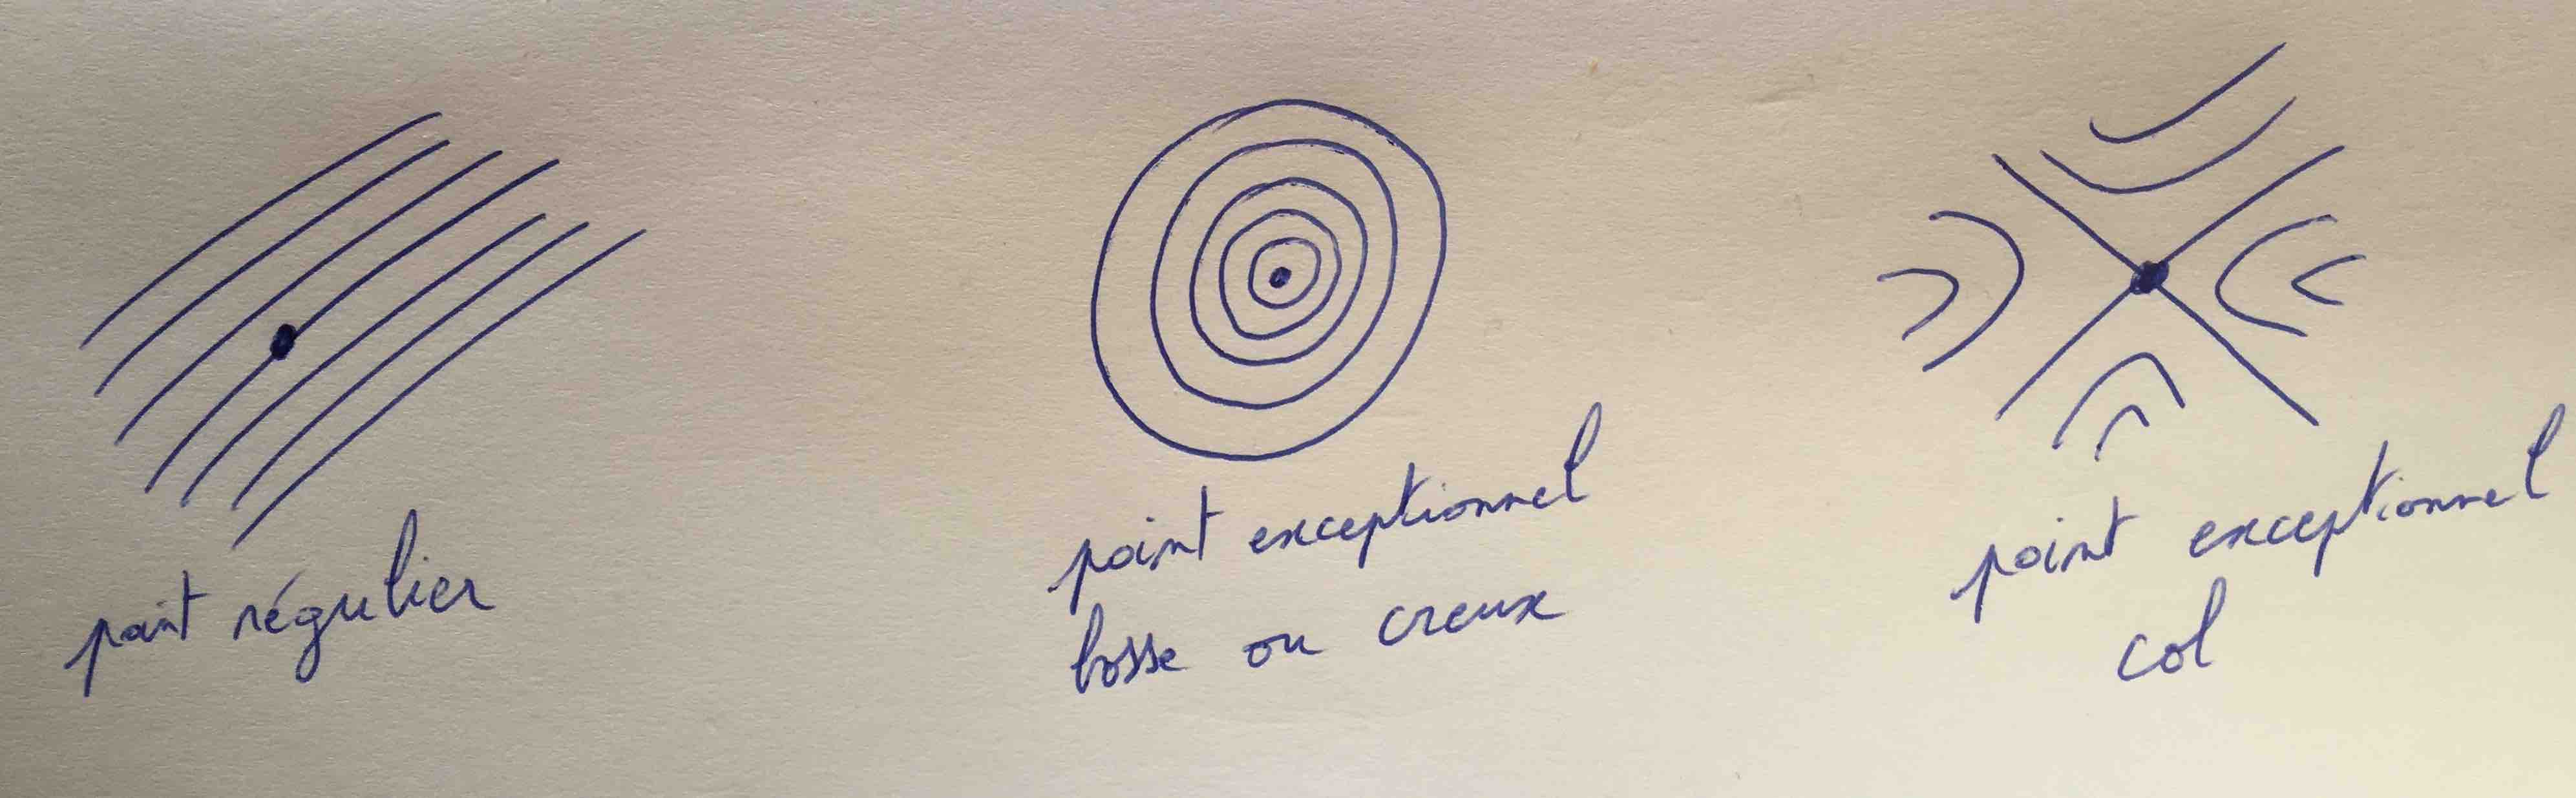 point régulier
point exceptionnel
bosse ou creux
point exceptionnel
col